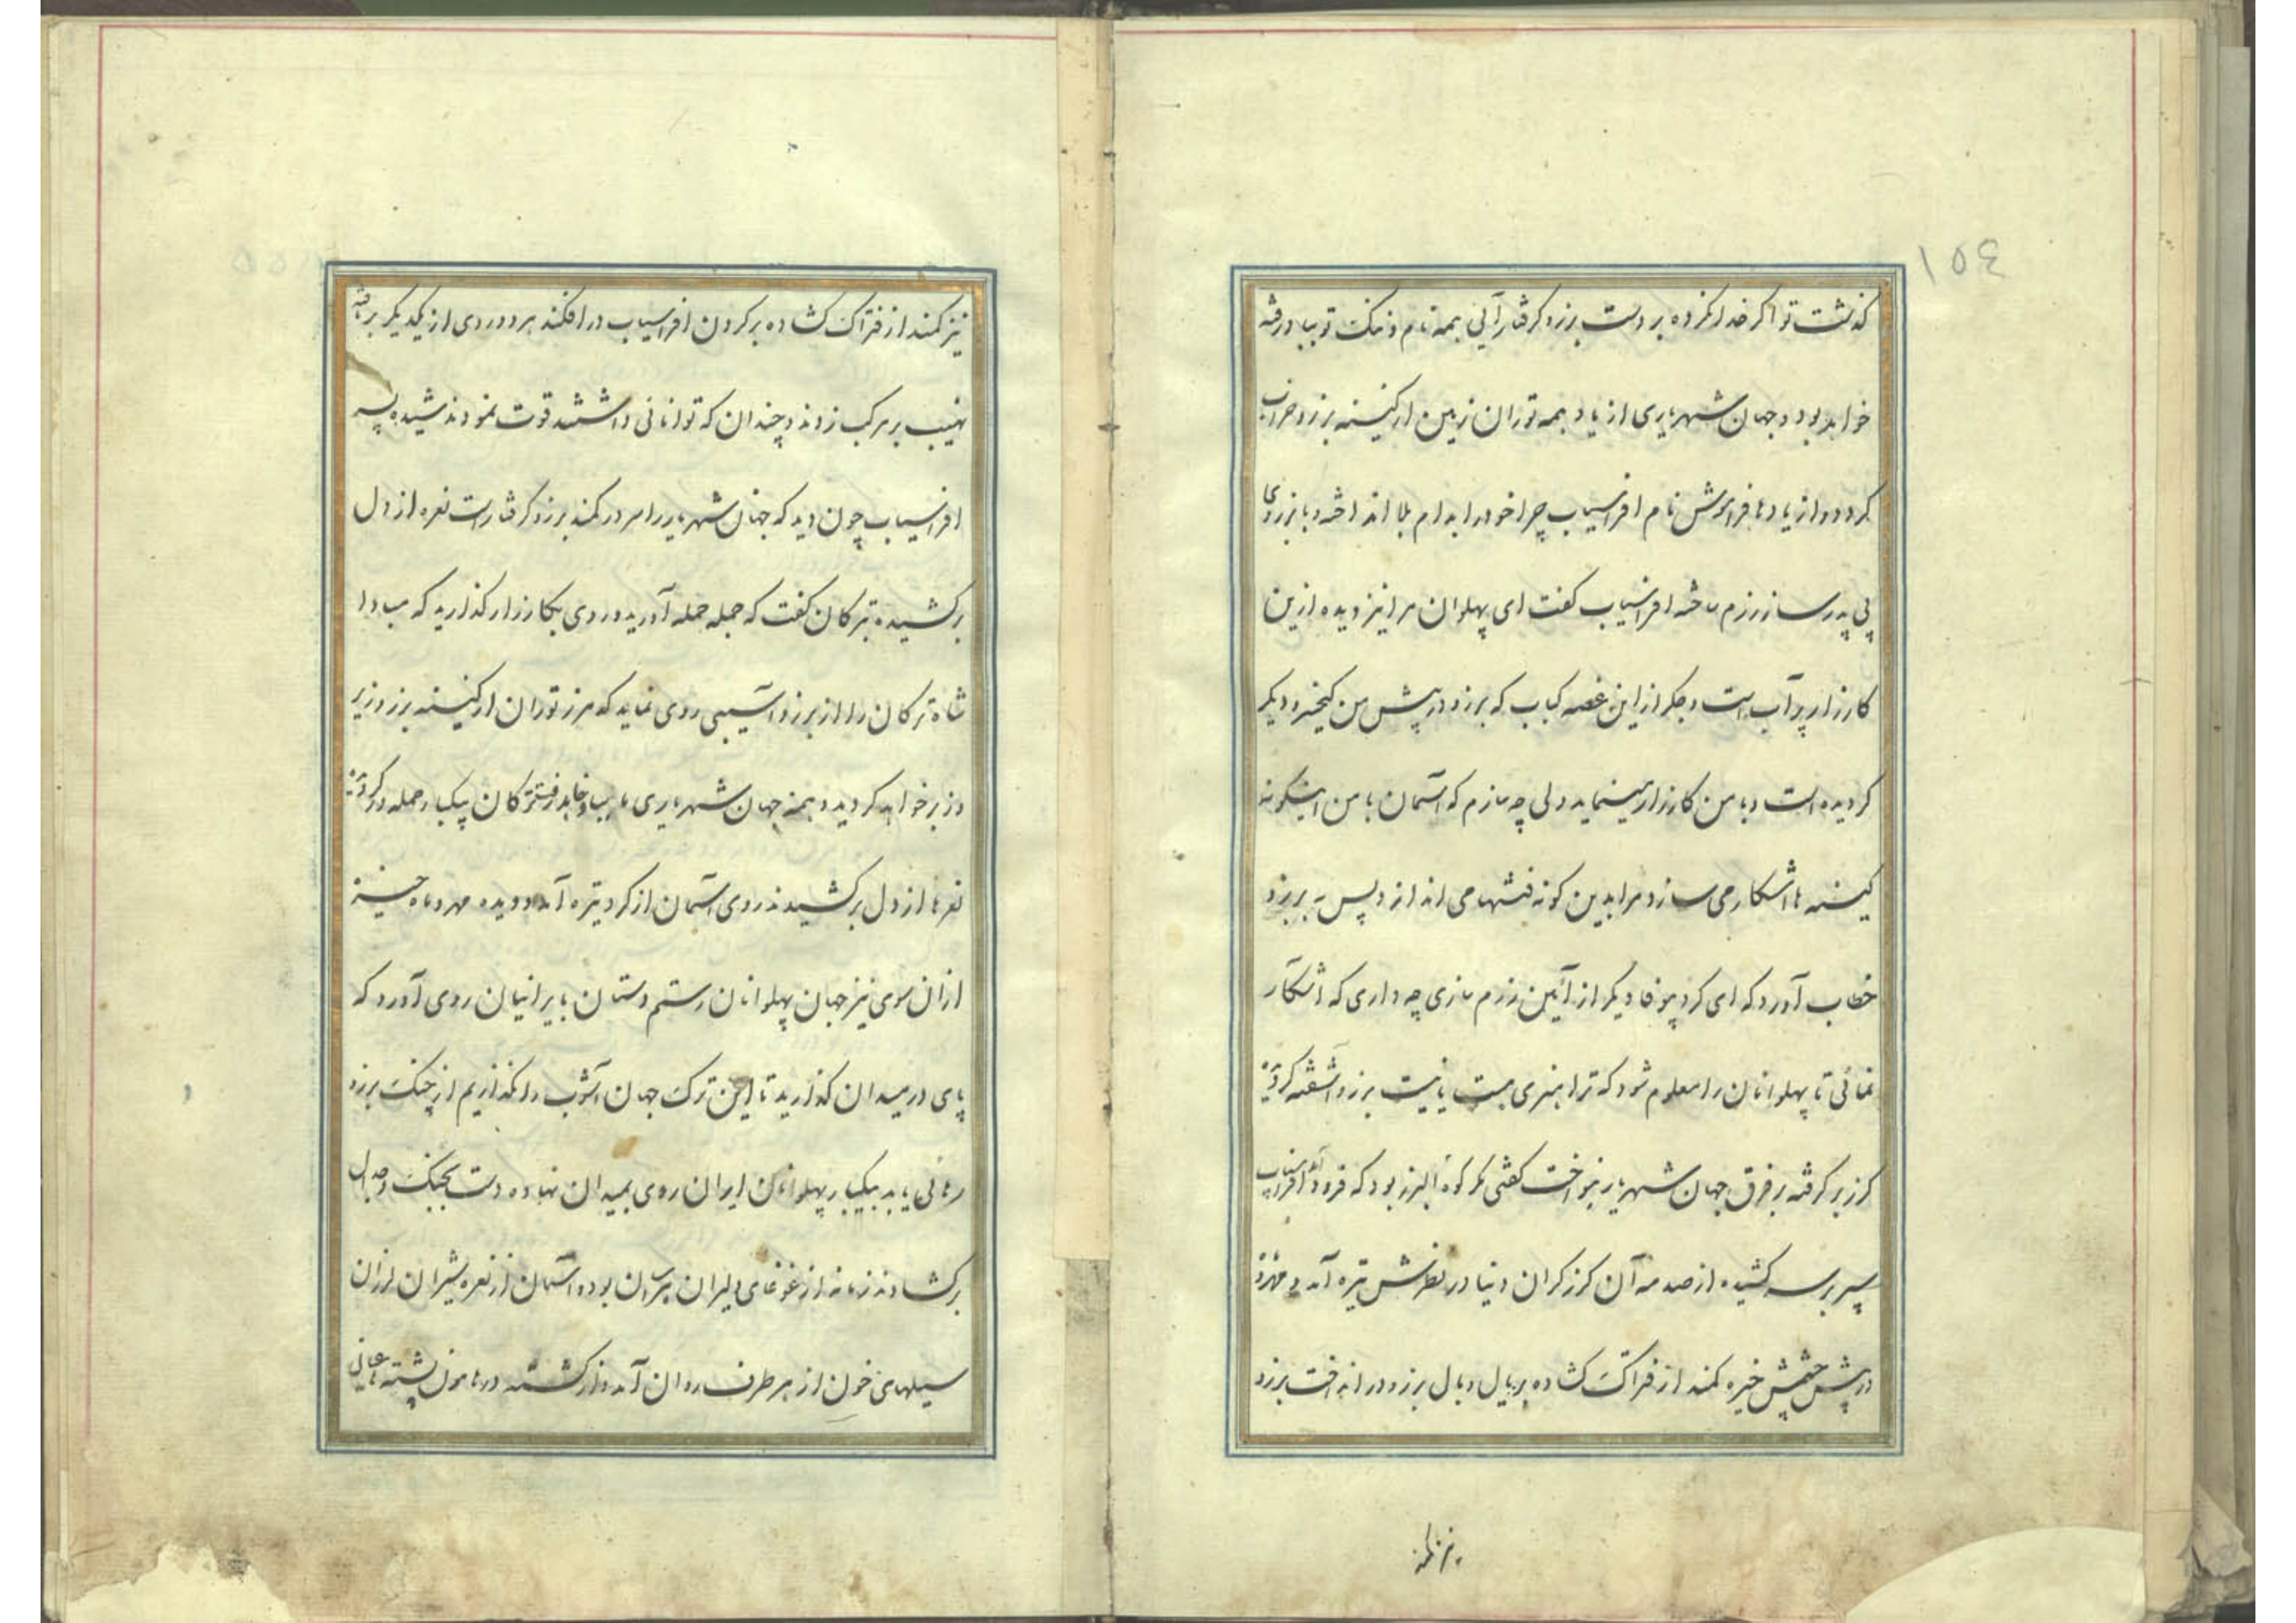 ١٥٤
کذشت تو اکر خدا نکرده بر دست برزو کرفتار آئی همه نام و ننک تو بباد رفته
خواهد بود و جهان شهریاری از یاد همه توران زمین از کینه برزو خراب
کردد و از یادها فراموش نام افراسیاب چرا خود را بدام بلا انداخته و با برزوی
پی پدر ساز رزم ساخته افراسیاب کفت ای پهلوان مرا نیز دیده ازین
کارزار پرآب است و جکر از این غصه کباب که برزو در پیش من کیخسرو دیکر
کردیده است و با من کارزار مینماید ولی چه سازم که آسمان با من اینکونه
کینه ها آشکار می سازد و مرا بدین کونه فتنها می اندازد پس به برزو
خطاب آورد که ای کرد بیوفا دیکر از آئین رزم سازی چه داری که آشکار
نمائی تا پهلوانان را معلوم شود که ترا هنری هست یا نیست برزو آشفته کردید
کرز بر کرفته بر فرق جهان شهریار بنواخت کفتی مکر کوه البرز بود که فرود آمد افراسیاب
سپر بر سر کشیده از صدمه آن کرز کران دنیا در نظرش تیره آمد و
در پیش چشمش خیره کمند از فتراک کشاده بر یال و بال برزو در انداخت برزو
نیز کمند
نیز کمند از فتراک کشاده بر کردن افراسیاب در افکند هر دو روی از یکدیکر برتافته
نهیب بر مرکب زدند و چندان که توانائی داشتند قوت نمودند شیده پسر
افراسیاب چون دید که جهان شهریار را سر در کمند برزو کرفتار است نعره از دل
برکشیده بترکان کفت که جمله حمله آورید و روی بکارزار کذارید که مبادا
شاه ترکان را از برزو آسیبی روی نماید که مرز توران از کینه برزو زیر
و زبر خواهد کردید و همه جهان شهریاری ما بباد خواهد رفت ترکان بیکبار حمله ور کردیده
نعرها از دل برکشیدند روی آسمان از کرد تیره آمد و دیده مهر و ماه خیره
از ان سوی نیز جهان پهلوانان رستم دستان بایرانیان روی آورد که
پای در میدان کذارید تا این ترک جهان آشوب را نکذاریم از چنک برزو
رهائی یابد بیکبار پهلوانان ایران روی بمیدان نهاده دست بجنک و جدال
برکشادند زمانه از غوغای دلیران هراسان بود و آسمان از نعره شیران لرزان
سیلهای خون از هر طرف روان آمد و از کشته در هامون پشته هائی